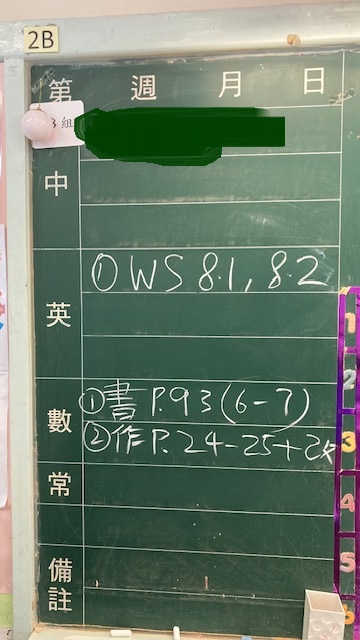 2B
第 週 月 日
組
中
① WS 8.1, 8.2
英
① 書 P.93 (6-7)
數
② 作 P.24-25+改
常
備註
1
2
3
4
5